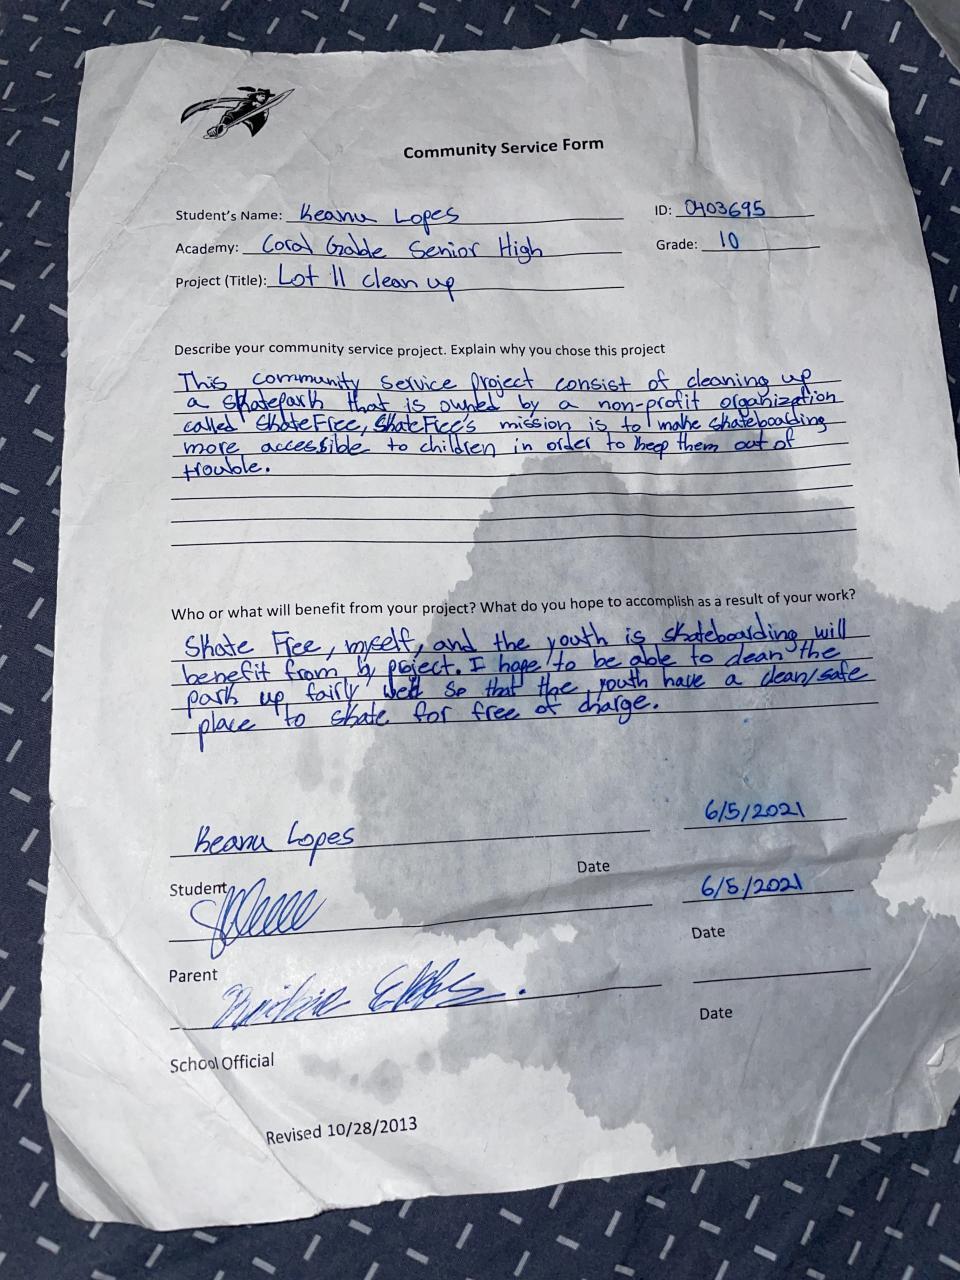 Community Service Form
Student's Name: Keanu Lopes ID: 0403695
Academy: Coral Gable Senior High Grade: 10
Project (Title): Lot 11 clean up
Describe your community service project. Explain why you chose this project
This community service project consist of cleaning up
a skatepark that is owned by a non-profit organization
called SkateFree, SkateFree's mission is to make skateboarding
more accessible to children in order to keep them out of
trouble.
Who or what will benefit from your project? What do you hope to accomplish as a result of your work?
Skate Free, myself, and the youth is skateboarding will
benefit from project. I hope to be able to clean the
park up fairly well so that the youth have a clean/safe
place to skate for free of charge.
Keanu Lopes 6/5/2021
Student Date
6/5/2021
Parent Date
School Official Date
Revised 10/28/2013